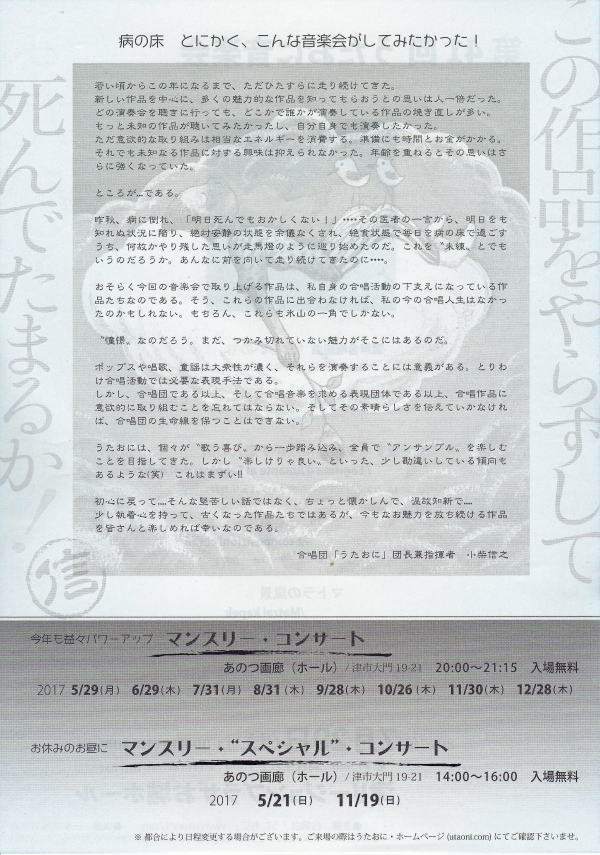 病の床　とにかく、こんな音楽会がしてみたかった！
この作品をやらずして
死んでたまるか！
信
若い頃からこの年になるまで、ただひたすらに走り続けてきた。
新しい作品を中心に、多くの魅力的な作品を知ってもらおうとの思いは人一倍だった。
どの演奏会を聴きに行っても、どこかで誰かが演奏している作品の焼き直しが多い。
もっと未知の作品が聴いてみたかったし、自分自身でも演奏したかった。
ただ意欲的な取り組みは相当なエネルギーを消費する。準備にも時間とお金がかかる。
それでも未知なる作品に対する興味は抑えられなかった。年齢を重ねるとその思いはさ
らに強くなっていった。
ところが…である。
昨秋、病に倒れ、「明日死んでもおかしくない！」‥‥その医者の一言から、明日をも
知れぬ状況に陥り、絶対安静の状態を余儀なくされ、絶食状態で毎日を病の床で過ごす
うち、何故かやり残した思いが走馬燈のように巡り始めたのだ。これを〝未練〟とでも
いうのだろうか。あんなに前を向いて走り続けてきたのに‥‥。
おそらく今回の音楽会で取り上げる作品は、私自身の合唱活動の下支えになっている作
品たちなのである。そう、これらの作品に出会わなければ、私の今の合唱人生はなかっ
たのかもしれない。もちろん、これらも氷山の一角でしかない。
〝憧憬〟なのだろう。まだ、つかみ切れていない魅力がそこにはあるのだ。
ポップスや唱歌、童謡は大衆性が濃く、それらを演奏することには意義がある。とりわ
け合唱活動では必要な表現手法である。
しかし、合唱団である以上、そして合唱音楽を求める表現団体である以上、合唱作品に
意欲的に取り組むことを忘れてはならない。そしてその素晴らしさを伝えていかなけれ
ば、合唱団の生命線を保つことはできない。
うたおには、個々が〝歌う喜び〟から一歩踏み込み、全員で〝アンサンブル〟を楽しむ
ことを目指してきた。しかし〝楽しけりゃ良い〟といった、少し勘違いしている傾向も
あるような(笑)　これはまずい!!
初心に戻って‥‥そんな堅苦しい話ではなく、ちょっと懐かしんで、温故知新で‥‥
少し執着心を持って、古くなった作品たちではあるが、今もなお魅力を放ち続ける作品
を皆さんと楽しめれば幸いなのである。
合唱団「うたおに」団長兼指揮者　小柴信之
今年も益々パワーアップ　マンスリー・コンサート
あのつ画廊（ホール）/ 津市大門 19-21　20:00～21:15　入場無料
2017 5/29(月)　6/29(木)　7/31(月)　8/31(木)　9/28(木)　10/26(木)　11/30(木)　12/28(木)
お休みのお昼に　マンスリー・“スペシャル”・コンサート
あのつ画廊（ホール）/ 津市大門 19-21　14:00～16:00　入場無料
2017　5/21(日)　11/19(日)
※ 都合により日程変更する場合がございます。ご来場の際はうたおに・ホームページ (utaoni.com) にてご確認下さいませ。